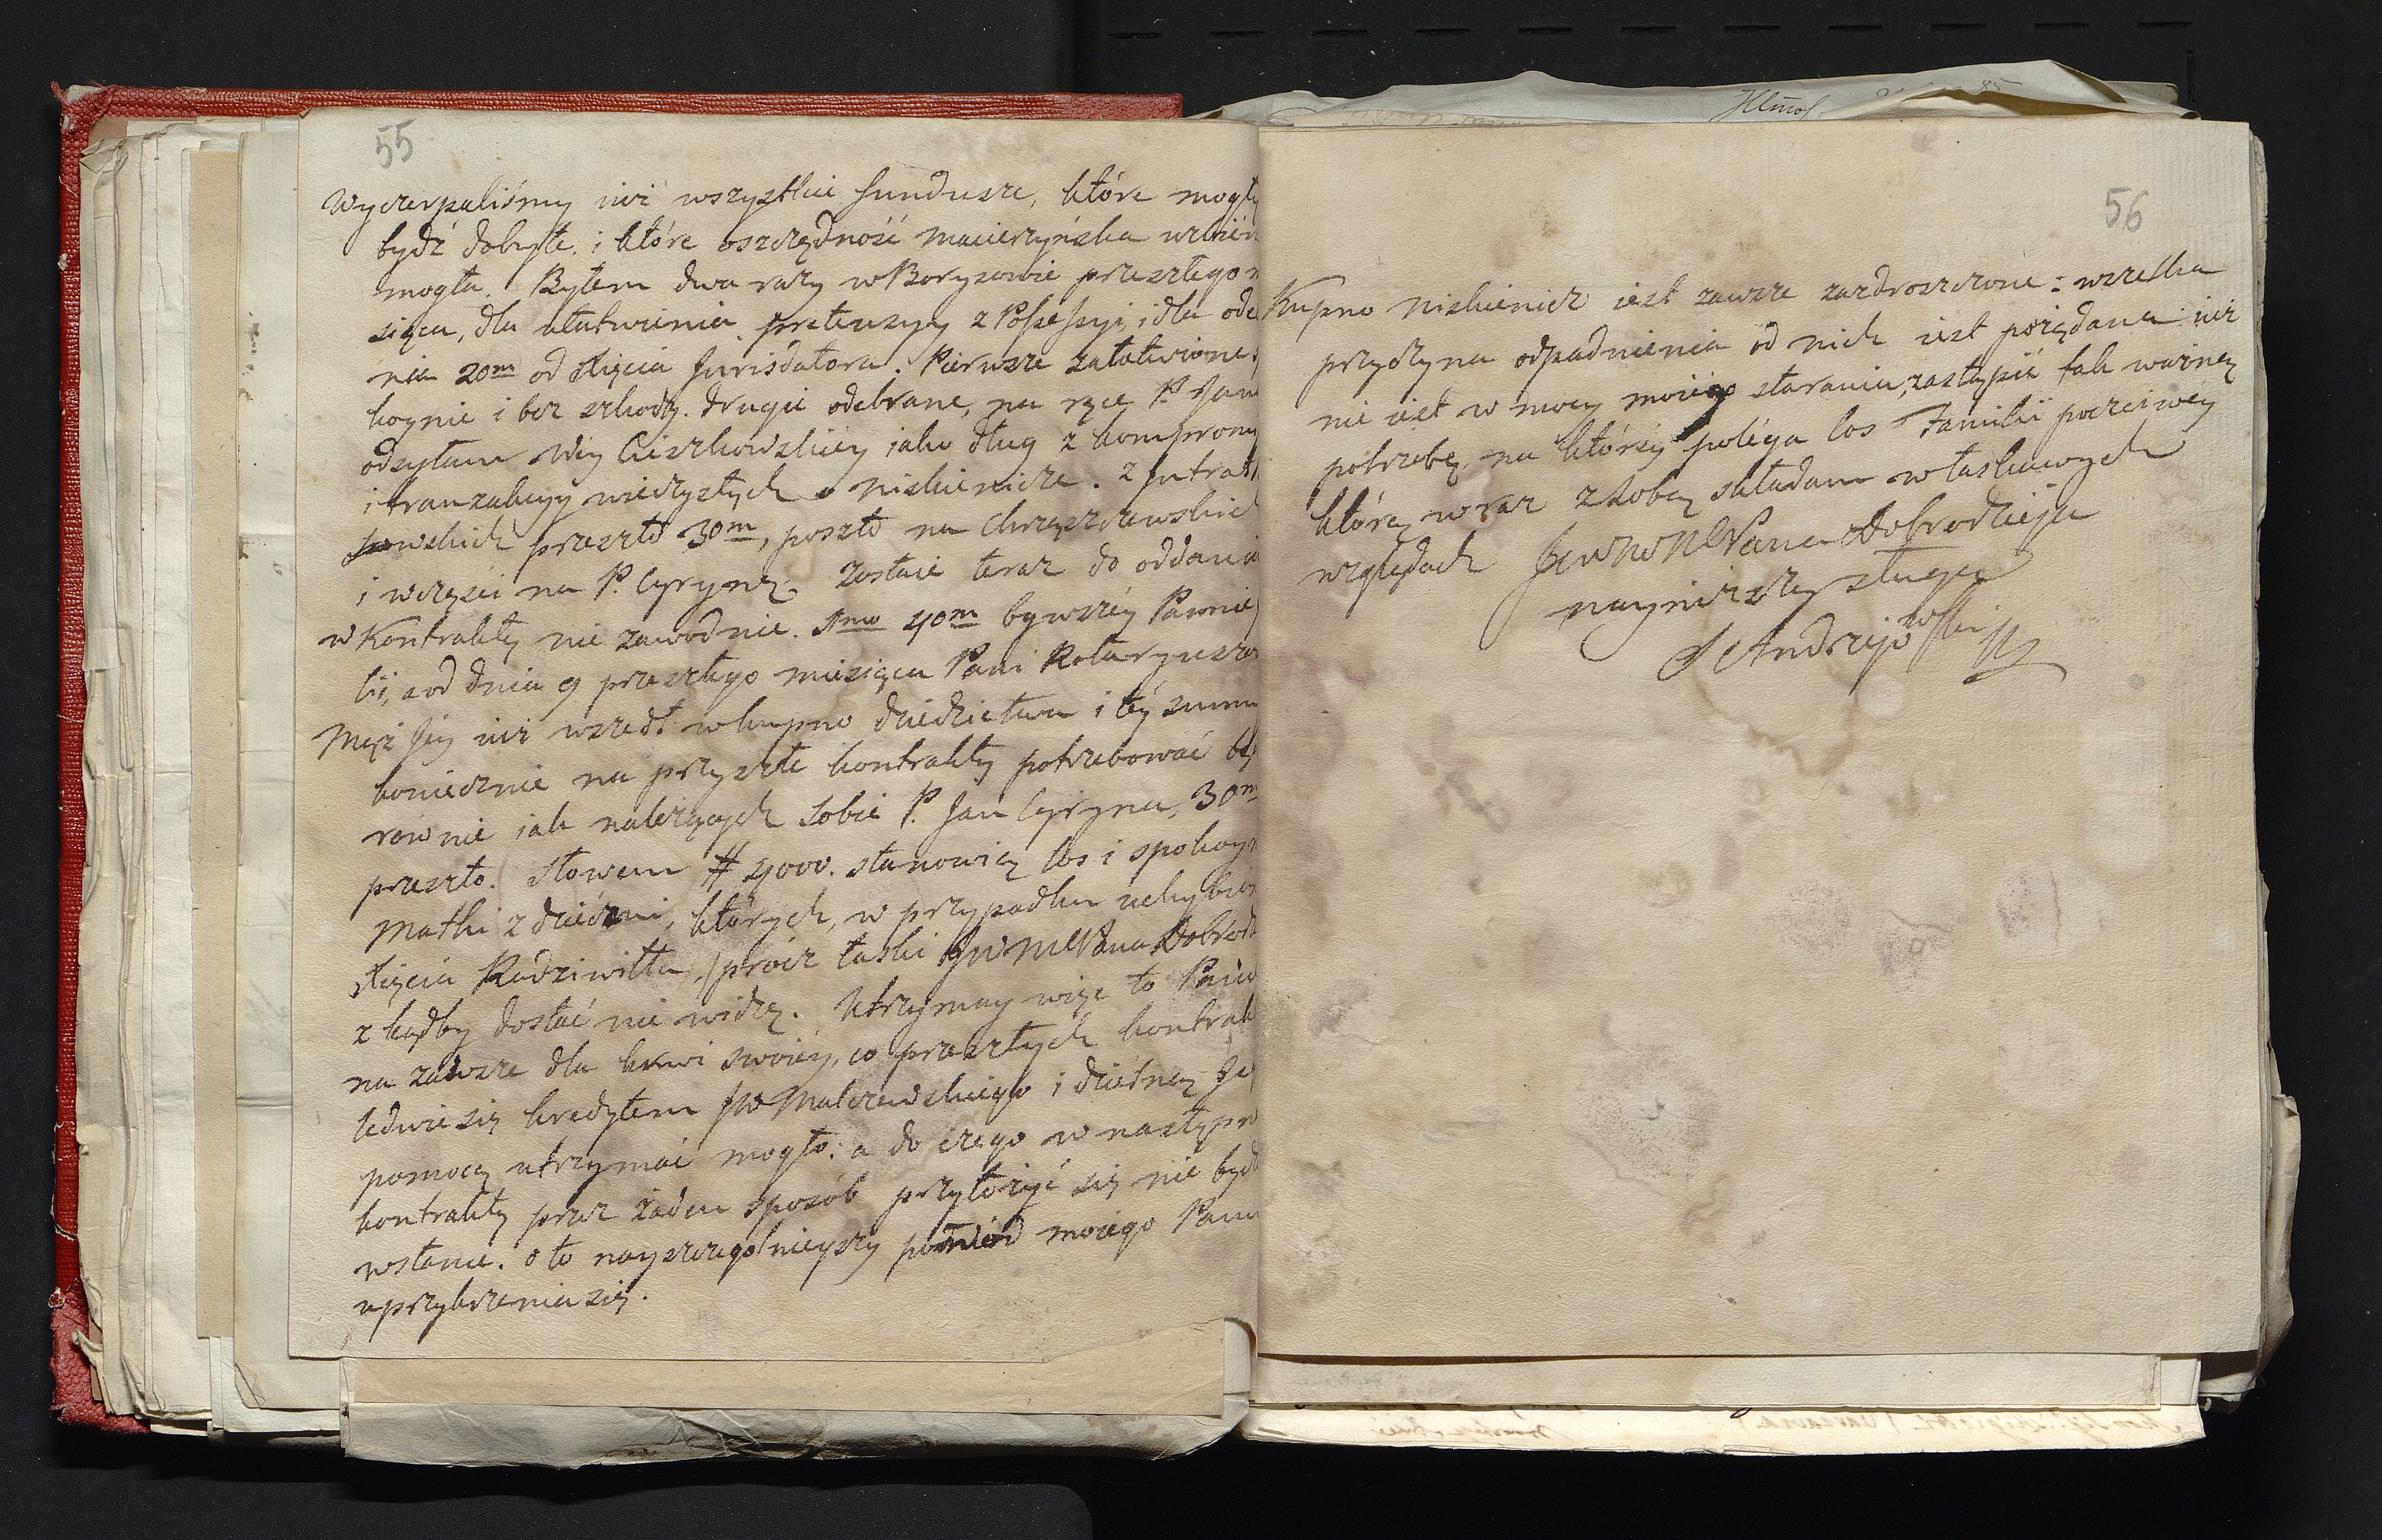 55
Wyczerpaliśmy iuż wszystkie fundusze, które mogły
bydź dobyte, i które oszczędność macierzyńska
mogła. Byłem dwa razy w Borysowie przeszłego
siąca, dla ułatwienia pretensyy z Possessyi, i dla
nia 20m od Xięcia Jurisdatora. Pierwsze załatwione
koynie i bez szkody. drugie odebrane, na ręce P. Jana
odsyłam Wey Cieszkowskiey jako dług z
i tranzakcyy wieczystych o niskienicze. z Intrat
przeszło 30m, poszło na Chrząszczewskich
i w części na P. Cyrynę. Zostaie teraz do oddania
w Kontrakty nie zawodnie. 1mo 40m bywszéy Pannie
lii, a od dnia 9 przeszłego miesiąca Pani
Mąż Jey iuż wszedł w kupno dziedzictwa i téy summ
koniecznie na przyszłe kontrakty potrzebować
rownie iak należących sobie P. Jan Cyryna, 30m
przeszło. Słowem # 4000. stanowią los i
Matki z dziećmi, których, w przypadku
Xięcia Radziwiłła, prócz łaski JWWMPana Dobrodz
z kądby dostać nie widzę. Utrzymay więc to Panie
na zawsze dla krwi swoiéy, co przeszłych kontrak
ledwie się kredytem JW Malczewskiego i dzielną Je
pomocą utrzymać mogło: a do czego w następne
kontrakty przez żaden sposób przyłożyć się nie
wstanie. o to nayszczegolnieyszy powód moiego Panu
uprzykrzenia się.
56
Kupno niskienicz iest zawsze zazdroszczone: wszelka
przyczyna odpadnienia od nich iest pożądana: iuż
nie iest w mocy moiego starania, zastąpić tak ważney
potrzebę, na którey poléga los Familii poczciwéy
którą wraz z sobą składam w łaskawych
względach JWWMPana Dobrodzieja
nayniższy sługa
Andrzejowski